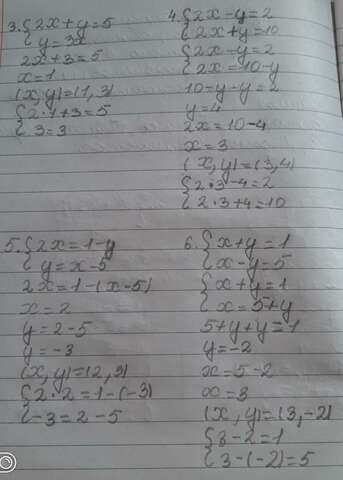 3. { 2x+y=5
{ y=3x
2x+3=5
x=1
(x,y)=(1,3)
{ 2·1+3=5
{ 3=3
4. { 2x-y=2
{ 2x+y=10
{ 2x-y=2
{ 2x=10-y
10-y-y=2
y=4
2x=10-4
x=3
(x,y)=(3,4)
{ 2·3-4=2
{ 2·3+4=10
5. { 2x=1-y
{ y=x-5
2x=1-(x-5)
x=2
y=2-5
y=-3
(x,y)=(2,3)
{ 2·2=1-(-3)
{ -3=2-5
6. { x+y=1
{ x-y=5
{ x+y=1
{ x=5+y
5+y+y=1
y=-2
x=5-2
x=3
(x,y)=(3,-2)
{ 3-2=1
{ 3-(-2)=5